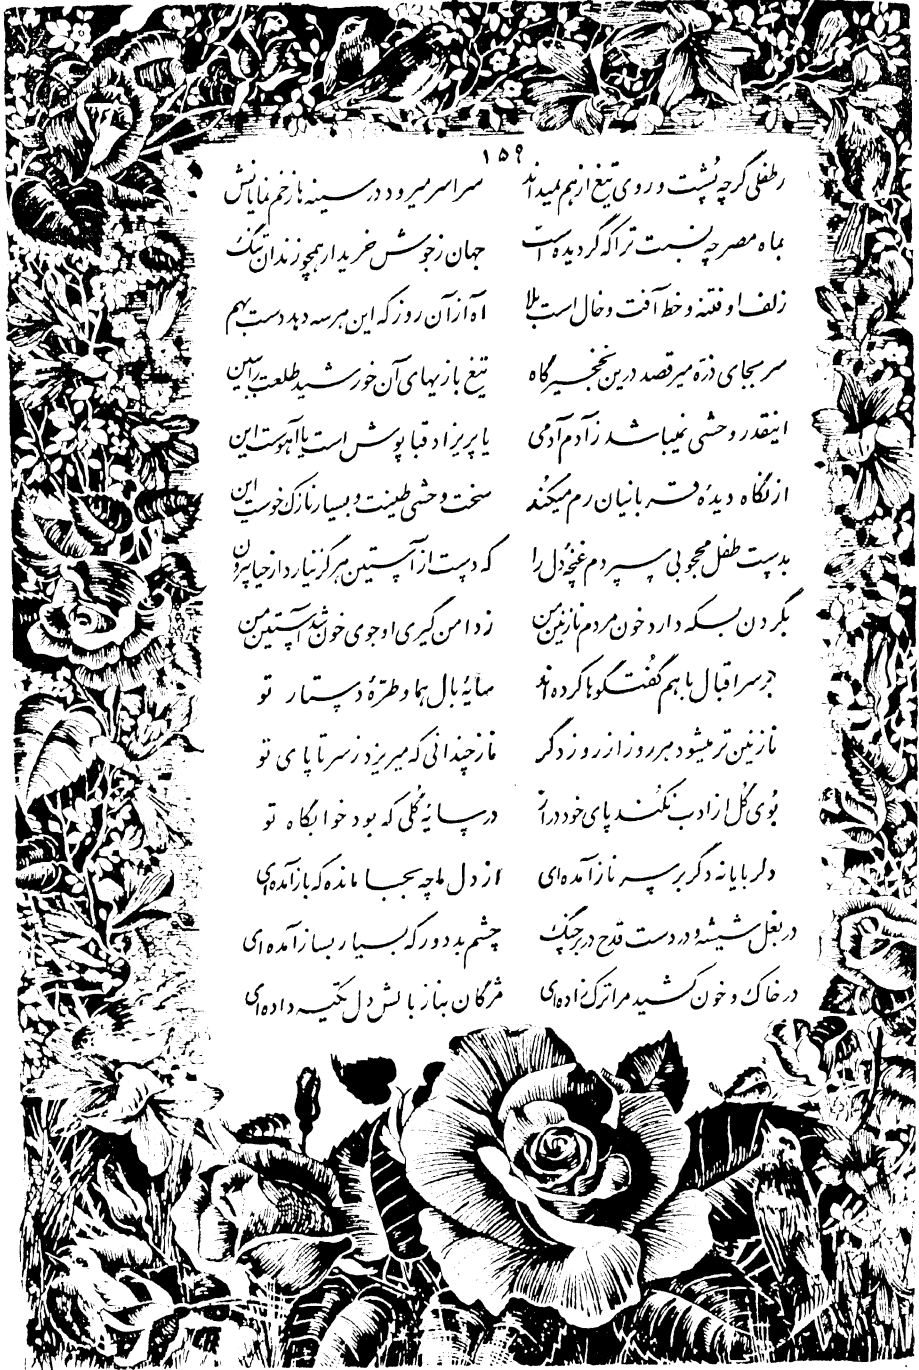 ۱۵۹
ز طفلی گرچه پشت و روی تیغ از هم نمیداند سراسر میرود در سینه ها زخم نمایانش
بماه مصر چه نسبت ترا که گردیده است جهان ز جوش خریدار همچو زندان تنگ
زلف او فتنه و خط آفت و خال است بلا آه از آن روز که این هر سه دهد دست بهم
سر بجای ذره میرقصد درین نخجیرگاه تیغ بازیهای آن خورشید طلعت را ببین
اینقدر وحشی نمیباشد ز آدم آدمی یا پریزاد قبا پوش است یا آهوست این
از نگاه دیدهٔ قربانیان رم میکند سخت وحشی طینت و بسیار نازک خوست این
بدست طفل محجوبی سپردم غنچهٔ دل را که دست از آستین هرگز نیارد از حیا بیرون
بگردن بسکه دارد خون مردم نازنین من ز دامن گیری او جوی خون شد آستین من
بر سر اقبال با هم گفتگوها کرده‌اند سایهٔ بال هما و طرهٔ دستار تو
نازنین تر میشود هر روز از روز دگر ناز چندانی که میریزد ز سر تا پای تو
بوی گل از ادب نکند پای خود دراز در سایهٔ گلی که بود خوابگاه تو
دلربایانه دگر بر سر ناز آمده‌ای از دل ما چه بجا مانده که باز آمده‌ای
در بغل شیشه و در دست قدح در بر چنگ چشم بد دور که بسیار بساز آمده‌ای
در خاک و خون کشید مرا ترک زاده‌ای مژگان بناز بالش دل تکیه داده‌ای